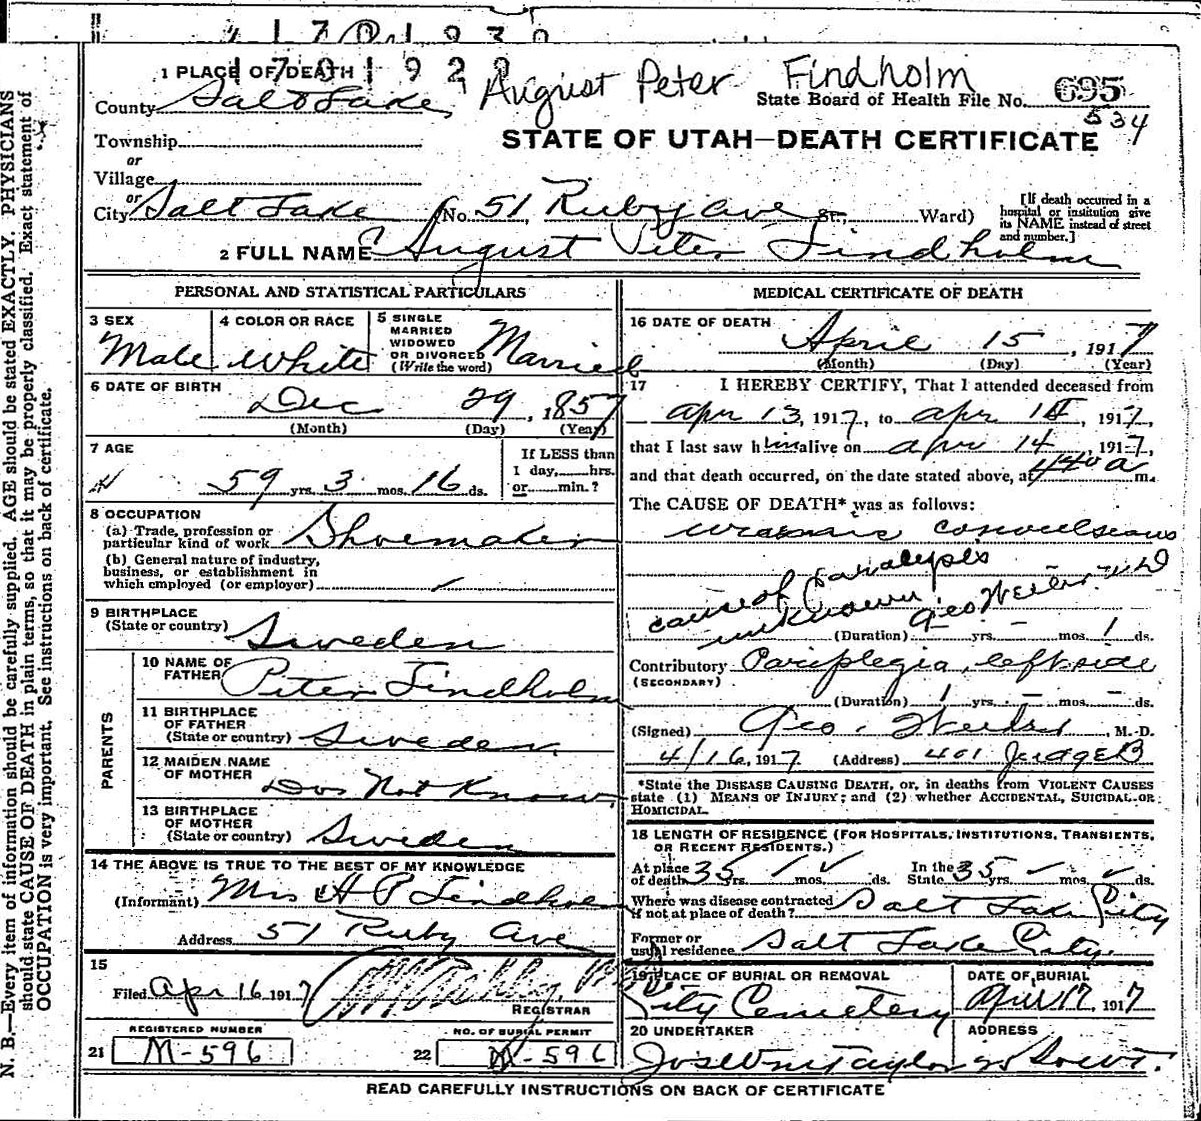 1701929
1 PLACE OF DEATH
August Peter Findholm
County Salt Lake
State Board of Health File No. 695
534
Township
STATE OF UTAH—DEATH CERTIFICATE
or
Village
or
City Salt Lake (No. 51 Ruby ave St., Ward)
[If death occurred in a hospital or institution give its NAME instead of street and number.]
2 FULL NAME August Peter Findholm
PERSONAL AND STATISTICAL PARTICULARS
3 SEX Male
4 COLOR OR RACE White
5 SINGLE MARRIED WIDOWED OR DIVORCED (Write the word) Married
6 DATE OF BIRTH
Dec 29, 1857
(Month) (Day) (Year)
7 AGE
59 yrs. 3 mos. 16 ds.
If LESS than 1 day, hrs. or min.?
8 OCCUPATION
(a) Trade, profession or particular kind of work Shoemaker
(b) General nature of industry, business, or establishment in which employed (or employer)
9 BIRTHPLACE
(State or country) Sweden
PARENTS
10 NAME OF FATHER Peter Findholm
11 BIRTHPLACE OF FATHER (State or country) Sweden
12 MAIDEN NAME OF MOTHER Does Not Know
13 BIRTHPLACE OF MOTHER (State or country) Sweden
14 THE ABOVE IS TRUE TO THE BEST OF MY KNOWLEDGE
(Informant) Mrs A P Findholm
Address 51 Ruby Ave
15
Filed Apr 16 1917
REGISTRAR
REGISTERED NUMBER
21 M-596
NO. OF BURIAL PERMIT
22 M-596
MEDICAL CERTIFICATE OF DEATH
16 DATE OF DEATH
April 15, 1917
(Month) (Day) (Year)
17 I HEREBY CERTIFY, That I attended deceased from
apr 13, 1917, to apr 1917,
that I last saw him alive on apr 14, 1917,
and that death occurred, on the date stated above, at 440 a m.
The CAUSE OF DEATH* was as follows:
uraemic convulsions
cause of paralysis
unknown Geo
(Duration) yrs. – mos. 1 ds.
Contributory Pariplegia left side
(SECONDARY)
(Duration) 1 yrs. – mos. – ds.
(Signed) Geo. M.-D.
4/16, 1917 (Address) 401 Judge B
*State the DISEASE CAUSING DEATH, or, in deaths from VIOLENT CAUSES
state (1) MEANS OF INJURY; and (2) whether ACCIDENTAL, SUICIDAL OR
HOMICIDAL.
18 LENGTH OF RESIDENCE (FOR HOSPITALS, INSTITUTIONS, TRANSIENTS, OR RECENT RESIDENTS.)
At place of death 35 yrs. mos. ds. In the State 35 yrs. mos. ds.
Where was disease contracted if not at place of death? Salt Lake City
Former or usual residence Salt Lake City.
19 PLACE OF BURIAL OR REMOVAL
City Cemetery
DATE OF BURIAL
April 17, 1917
20 UNDERTAKER
Jos Wm Taylor
ADDRESS
READ CAREFULLY INSTRUCTIONS ON BACK OF CERTIFICATE
N. B.—Every item of information should be carefully supplied. AGE should be stated EXACTLY. PHYSICIANS
should state CAUSE OF DEATH in plain terms, so that it may be properly classified. Exact statement of
OCCUPATION is very important. See instructions on back of certificate.